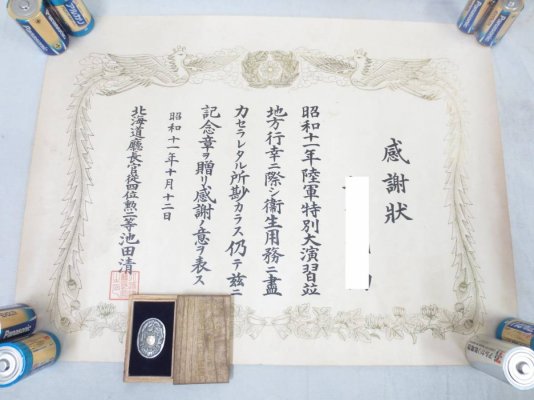 感謝狀
昭和十一年陸軍特別大演習竝
地方行幸ニ際シ衞生用務ニ盡
力セラレタル所尠カラス仍テ玆ニ
記念章ヲ贈リ感謝ノ意ヲ表ス
昭和十一年十月十二日
北海道廳長官從四位勲三等池田清
Panasonic
Panasonic
Panasonic
Panasonic